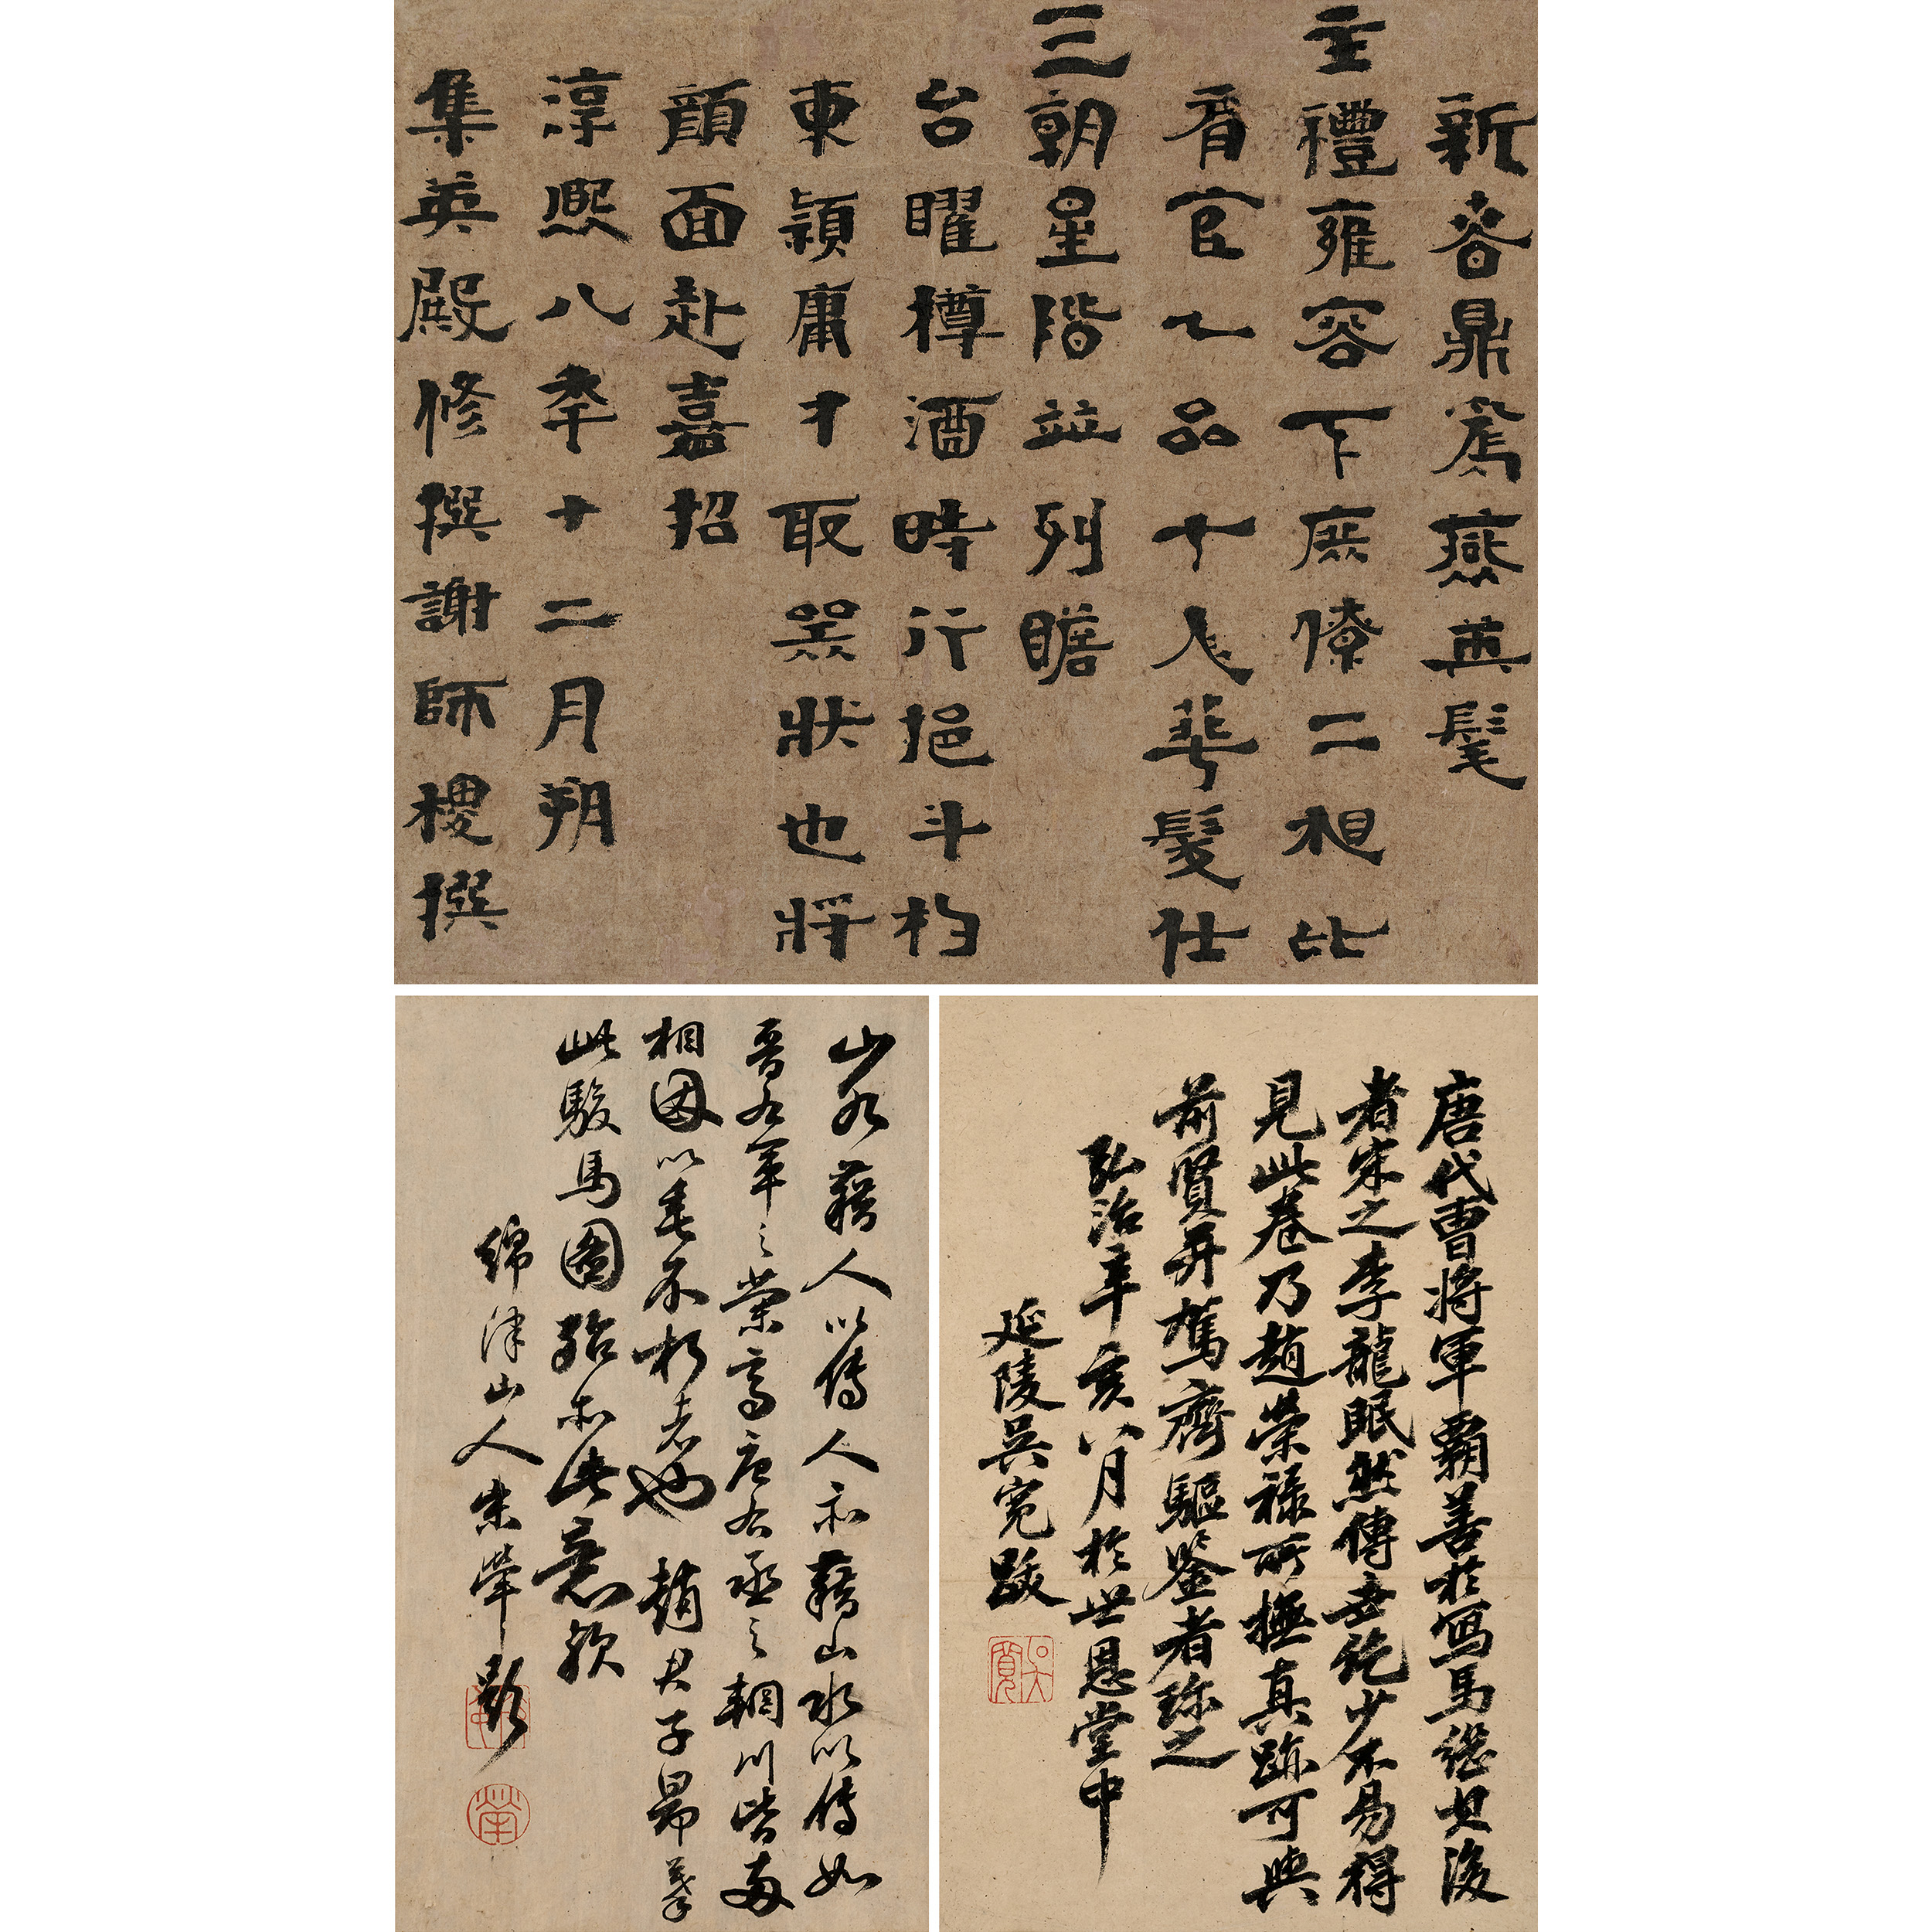 新春鼎寫燕英髦
主禮雍容下庶僚二相比
肩官乙品十人華髮仕
三朝星階並列瞻
台曜樽酒時行挹斗杓
東潁庸才取器狀也將
顔面赴嘉招
淳熙八年十二月朔
集英殿修撰謝師稷撰
唐代曹將軍霸善於寫馬繼其後
者宋之李龍眠然傳世絶少不易得
見此卷乃趙榮祿所摹真跡可與
前賢並駕齊驅鑒者珍之
弘治辛亥八月於世恩堂中
延陵吳寛跋
吳寬
山水藉人以傳人亦藉山水以傳如
晉右軍之蘭亭唐右丞之輞川皆兩
相因以垂不朽者也趙君子昂摹
此駿馬圖殆亦此意歟
綿津山人宋犖題
犖